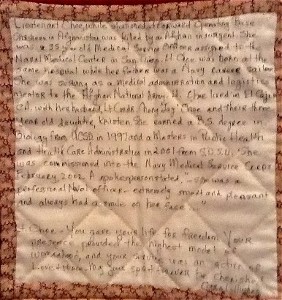 Lieutenant Choe, while stationed at Forward Operating Base
Shaheen in Afghanistan was killed by an Afghan insurgent. She
was a 35 year old Medical Service Officer assigned to the
Naval Medical Center in San Diego. Lt Choe was born at the
same hospital while her father was a Navy career sailor
She was serving as a Medical administration and logistics
mentor to the Afghan National Army. Lt Choe lived in El Cajon
CA with her husband, Lt Cmdr Chong "Jay" Choe and their three
year old daughter, Kristin. She earned a B.S. degree in
Biology from UCSD in 1997 and a Masters in Public Health
and Health Care Administration in 2001 from SDSU. She
was commissioned into the Navy Medical Service Corps
February 2002. A spokesperson stated, - she was a
professional Naval officer - extremely modest and pleasant
and always had a smile on her face
Lt Choe - You gave your life for Freedom. Your
presence provided the highest model of
womanhood, and your service was an action of
Love